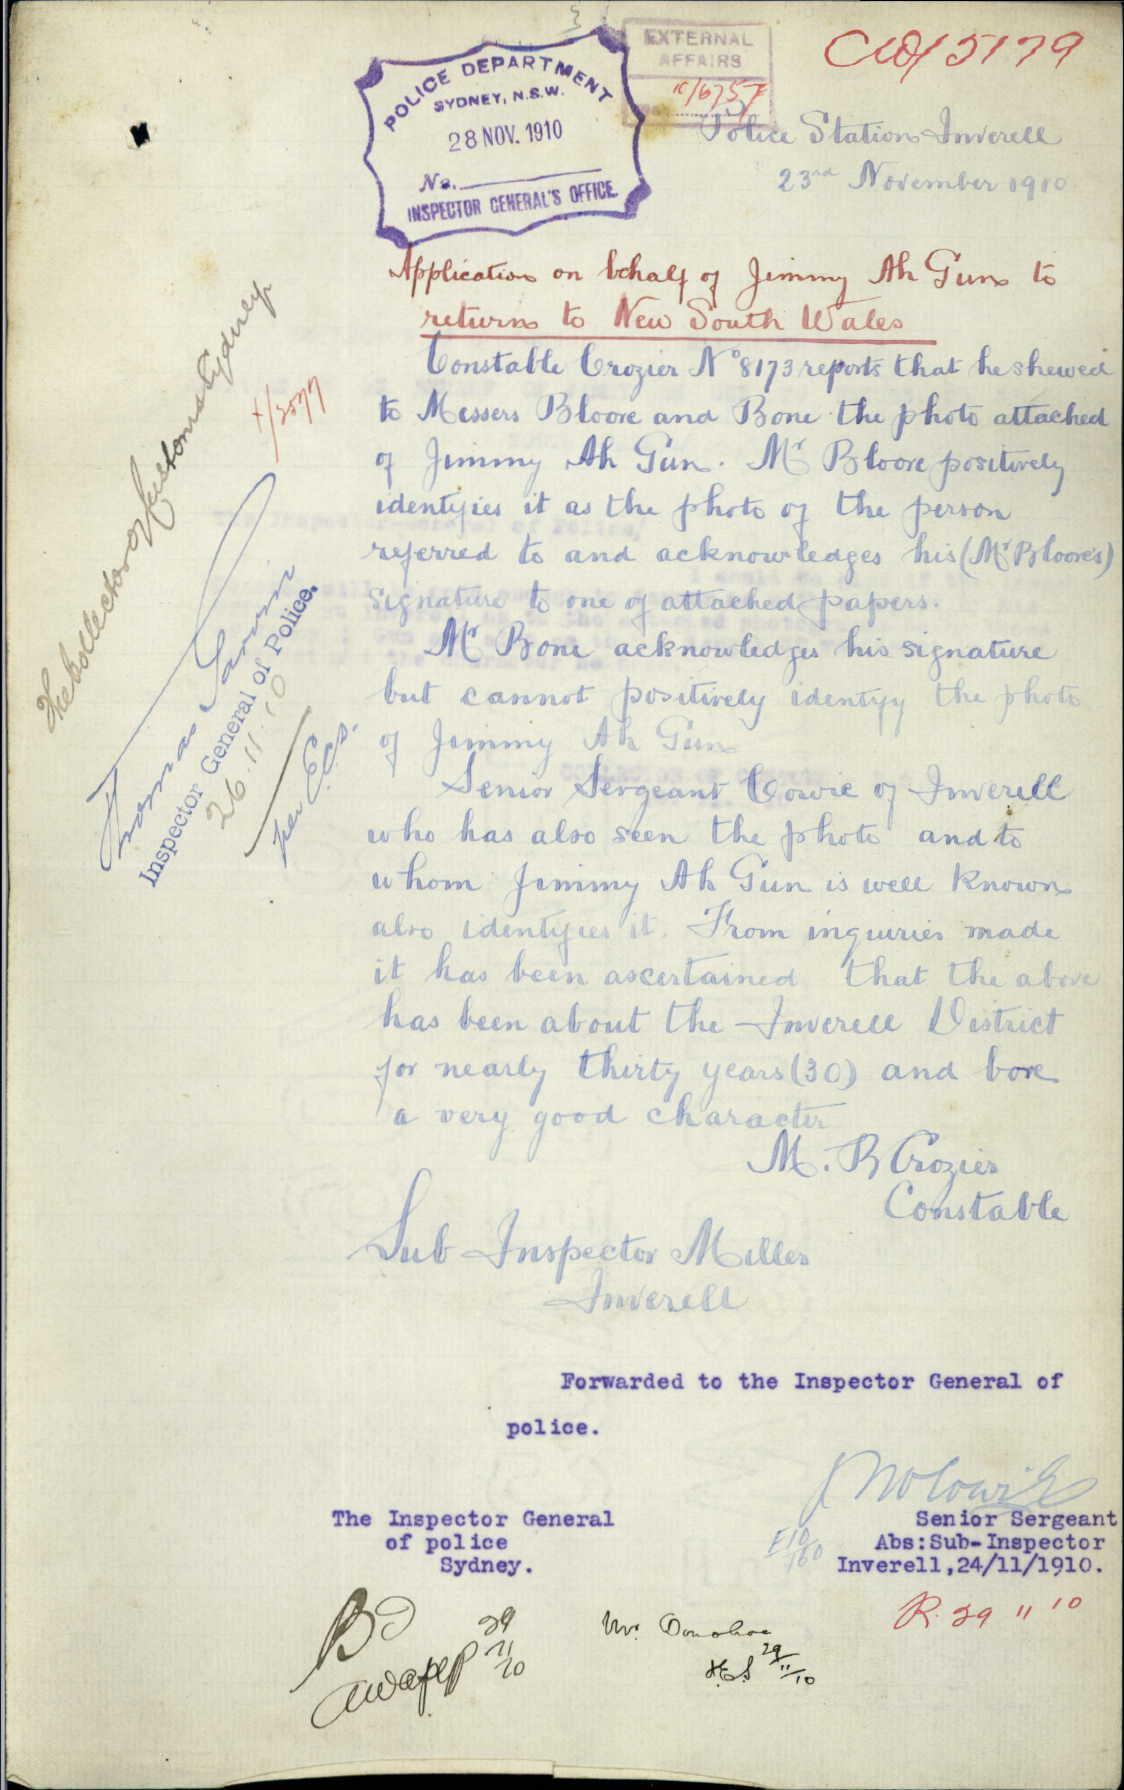 POLICE DEPARTMENT
SYDNEY, N.S.W.
28 NOV. 1910
No.
INSPECTOR GENERAL'S OFFICE.
EXTERNAL
AFFAIRS
5179
Police Station Inverell
23rd November 1910
Application on behalf of Jimmy Ah Gun to
return to New South Wales
Constable Crozier No 8173 reports that he shewed
to Messers Bloore and Bone the photo attached
of Jimmy Ah Gun. Mr Bloore positively
identifies it as the photo of the person
referred to and acknowledges his (Mr Bloore's)
signature to one of attached papers.
Mr Bone acknowledges his signature
but cannot positively identify the photo
of Jimmy Ah Gun
Senior Sergeant Cowie of Inverell
who has also seen the photo and to
whom Jimmy Ah Gun is well known
also identifies it. From inquiries made
it has been ascertained that the above
has been about the Inverell District
for nearly thirty years (30) and bore
a very good character
M. B Crozier
Constable
Sub Inspector Miller
Inverell
The Collector of Customs Sydney
Thomas
Inspector General of Police.
26.11.10
per
Forwarded to the Inspector General of
police.
The Inspector General
of police
Sydney.
Cowie
Senior Sergeant
Abs:Sub-Inspector
Inverell,24/11/1910.
E10/160
R. 29 11 10
29/11/10
Mr. Donohoe
29/11/10